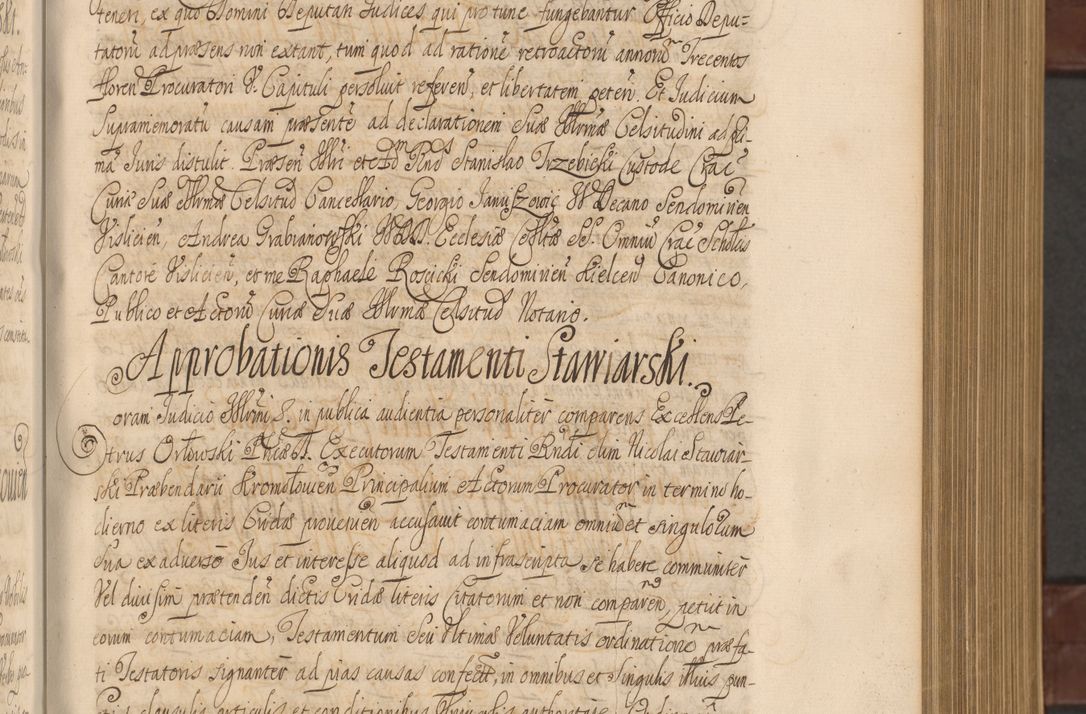 teneri, ex quo Domini Deputati Judices qui pro tunc fungebantur Officio Depu-
tatorū ad præsens non extant, tum quod ad rationē retroactorū annorū Trecentos
floren Procuratori V. Capituli persoluit referen, et libertatem peten. Et Judicium
Supramemoratū causam præsentē ad declarationem Suæ Illrmæ Celsitudini
ma Juris distulit. Præsen Illri et Adm Rnd Stanislao Trzebicki Custode Crac
Curiæ Suæ Illrmæ Celsitud Cancellario, Georgio Januszowic Decano Sendomirien
Vislicien, Andrea Grabianowski Ecclesiæ SS. Omniū Crac Scholas
Cantorē Vislicien, et me Raphaele Roscicki Sendomirien Kielcen Canonico,
Publico et Actorū Curiæ Suæ Illrmæ Celsitud Notario.
Approbationis Testamenti Stawiarski.
oram Judicio Illrmi S. in publica audientia personaliter comparens Excellens Pe-
trus Orłowski Executorum Testamenti Rndi olim Nicolai Stawiar-
ski Præbendarii Kromołowien Principalium Actorum Procurator in termino ho-
dierno ex literis Cridæ prouenien accusauit contumaciam omniū et singulorum
sua ex aduerso Jus et interesse aliquod ad infrascripta se habere communiter
Vel diuisim prætenden dictis Cridæ literis Citatorum et non comparen, petiit in
eorum contumaciam, Testamentum Seu Vltimæ Voluntatis ordinationē præfa-
ti Testatoris signanter ad pias causas confect, in omnibus et Singulis illius pun-
clausulis articulis et conditionibus authoritate